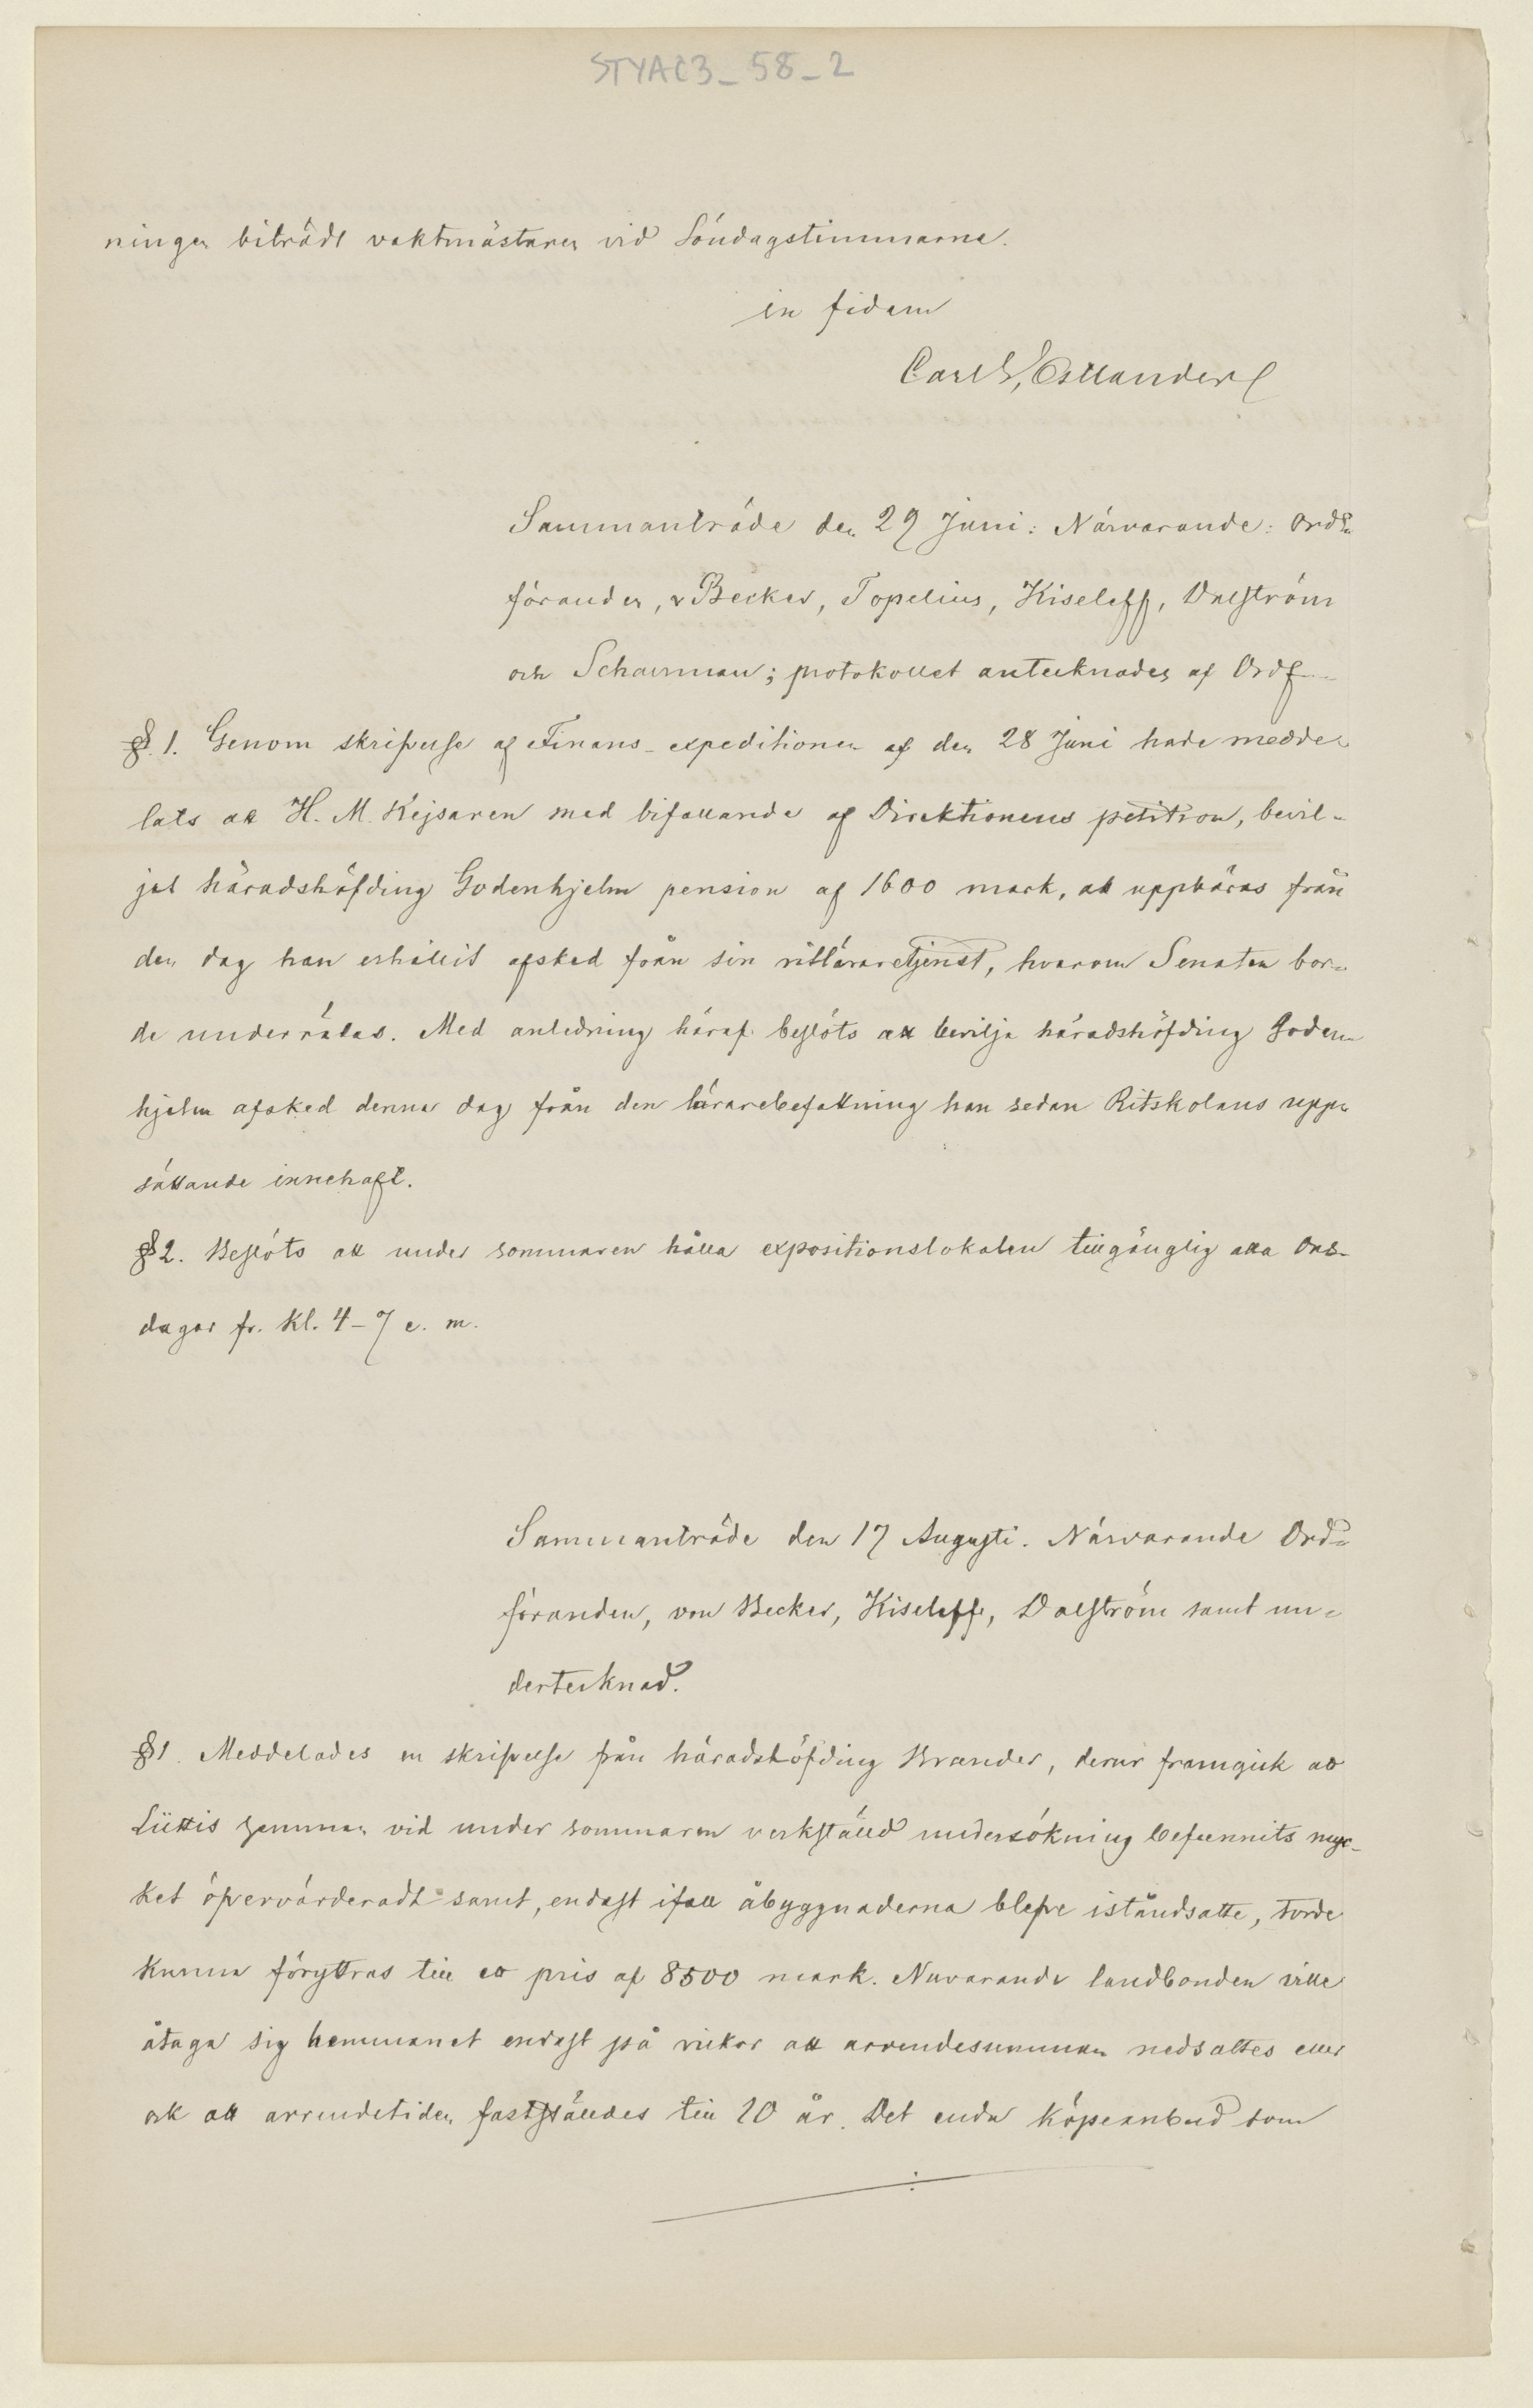 STYAC3_58_2
ningen biträdt vaktmästaren vid Söndagstimmarna.
in fidem
Carl G. Estlander
Sammanträde den 29 Juni: Närvarande: Ord=
föranden, v Becker, Topelius, Kiseleff, Dalström
och Schauman; protokollet antecknades af Ordf
§. 1. Genom skrifvelse af Finans-expeditionen af den 28 Juni hade medde-
lats att H. M. Kejsaren med bifallande af Direktionens petition, bevil-
jat häradshöfding Godenhjelm pension af 1600 mark, att uppbäras från
den dag han erhållit afsked från sin ritläraretjenst, hvarom Senaten bor-
de underrätas. Med anledning häraf beslöts att bevilja häradshöfding Goden-
hjelm afsked denna dag från den lärarebefattning han sedan Ritskolans upp-
sättande innehaft.
§ 2. Beslöts att under sommaren hålla expositionslokalen tillgänglig alla Ons-
dagar fr. kl. 4-7 e. m.
Sammanträde den 17 Augusti. Närvarande Ord=
föranden, von Becker, Kiseleff, Dalström samt un=
dertecknad.
§ 1. Meddelades en skrifvelse från häradshöfding Brander, derur framgick att
hemman vid under sommaren verkställd undersökning befunnits myc-
ket öfvervärderadt samt, endast ifall åbyggnaderna blefve iståndsatte, torde
kunna föryttras till ett pris af 8500 mark. Nuvarande landbonden ville
åtaga sig hemmanet endast på vilkor att arrendesumman nedsattes eller
ock att arrendetiden fastställdes till 20 år. Det enda köpeanbud som